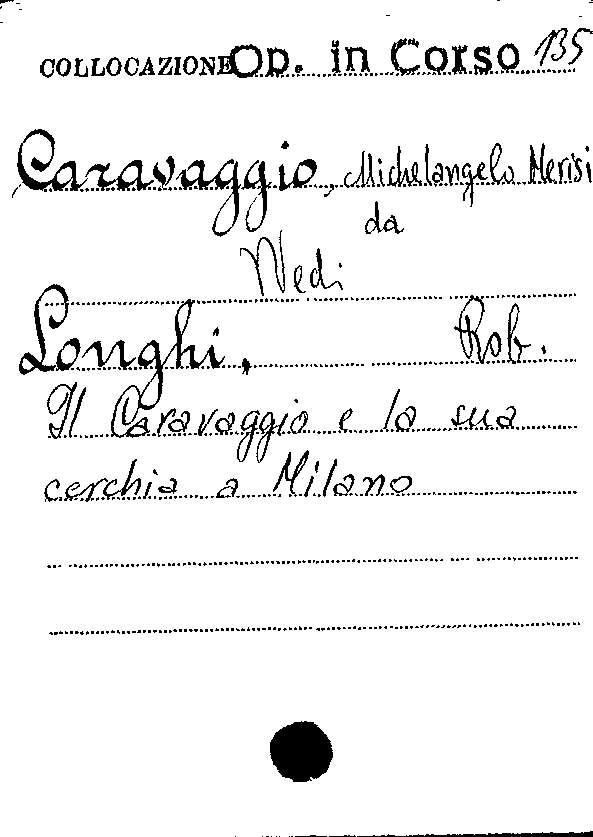 COLLOCAZIONE Op. in Corso 135
Caravaggio, Michelangelo Merisi
da
Vedi
Longhi, Rob.
Il Caravaggio e la sua
cerchia a Milano